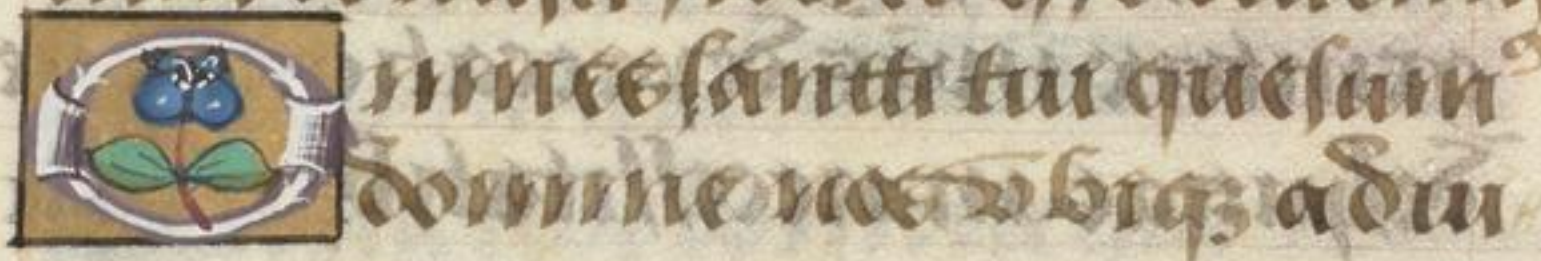 Omnes sancti tui quesumꝰ
domine nos vbiqꝫ adiu